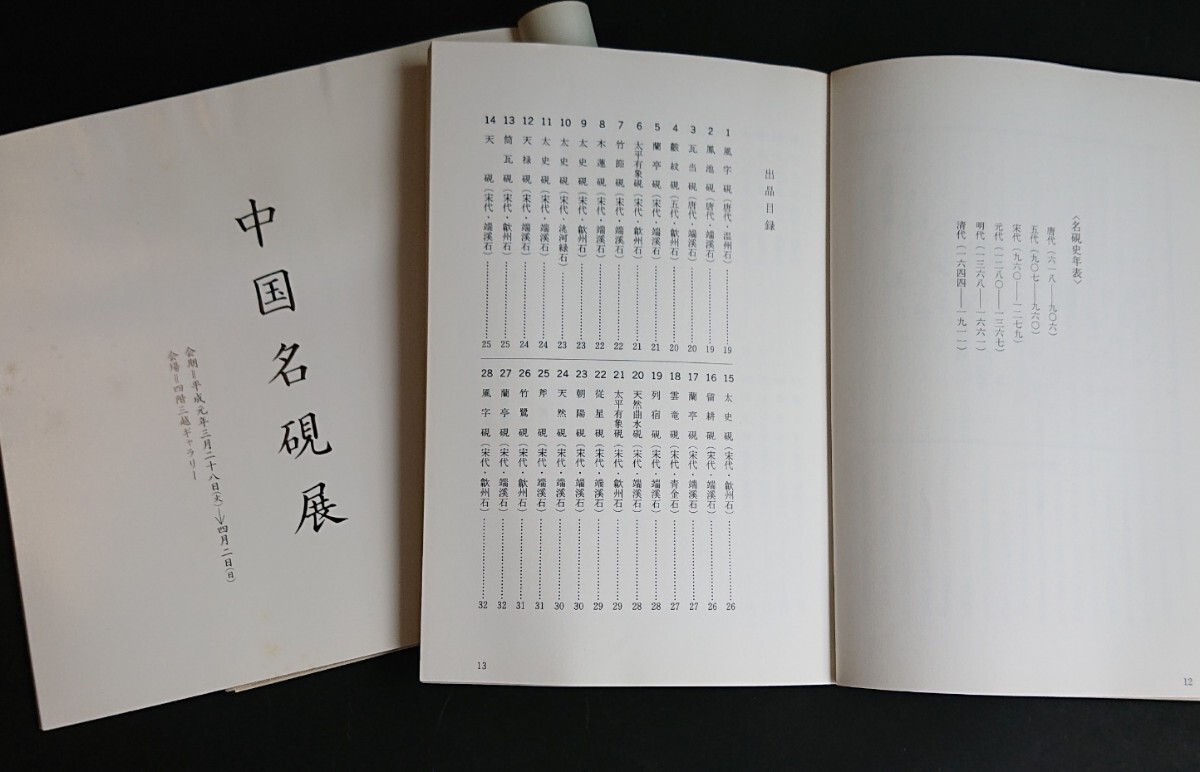 中国名硯展
会期＝平成元年三月二十八日(火)→四月二日(日)
会場＝四階三越ギャラリー
〈名硯史年表〉
唐代（六一八——九〇六）
五代（九〇七——九六〇）
宋代（九六〇——一二七九）
元代（一二八〇——一三六七）
明代（一三六八——一六六一）
清代（一六四四——一九一一）
12
出品目録
1 風字硯（唐代・温州石）……19
2 鳳池硯（唐代・端溪石）……19
3 瓦当硯（唐代・端溪石）……20
4 觳紋硯（五代・歙州石）……20
5 蘭亭硯（宋代・端溪石）……21
6 太平有象硯（宋代・歙州石）……21
7 竹節硯（宋代・端溪石）……22
8 木蓮硯（宋代・端溪石）……22
9 太史硯（宋代・歙州石）……23
10 太史硯（宋代・洮河緑石）……23
11 太史硯（宋代・端溪石）……24
12 天禄硯（宋代・端溪石）……24
13 筒瓦硯（宋代・歙州石）……25
14 天硯（宋代・端溪石）……25
15 太史硯（宋代・歙州石）……26
16 留耕硯（宋代・端溪石）……26
17 蘭亭硯（宋代・端溪石）……27
18 雲竜硯（宋代・青金石）……27
19 列宿硯（宋代・端溪石）……28
20 天然曲水硯（宋代・端溪石）……28
21 太平有象硯（宋代・歙州石）……29
22 従星硯（宋代・端溪石）……29
23 朝陽硯（宋代・端溪石）……30
24 天然硯（宋代・端溪石）……30
25 斧硯（宋代・端溪石）……31
26 竹鷺硯（宋代・歙州石）……31
27 蘭亭硯（宋代・端溪石）……32
28 風字硯（宋代・歙州石）……32
13